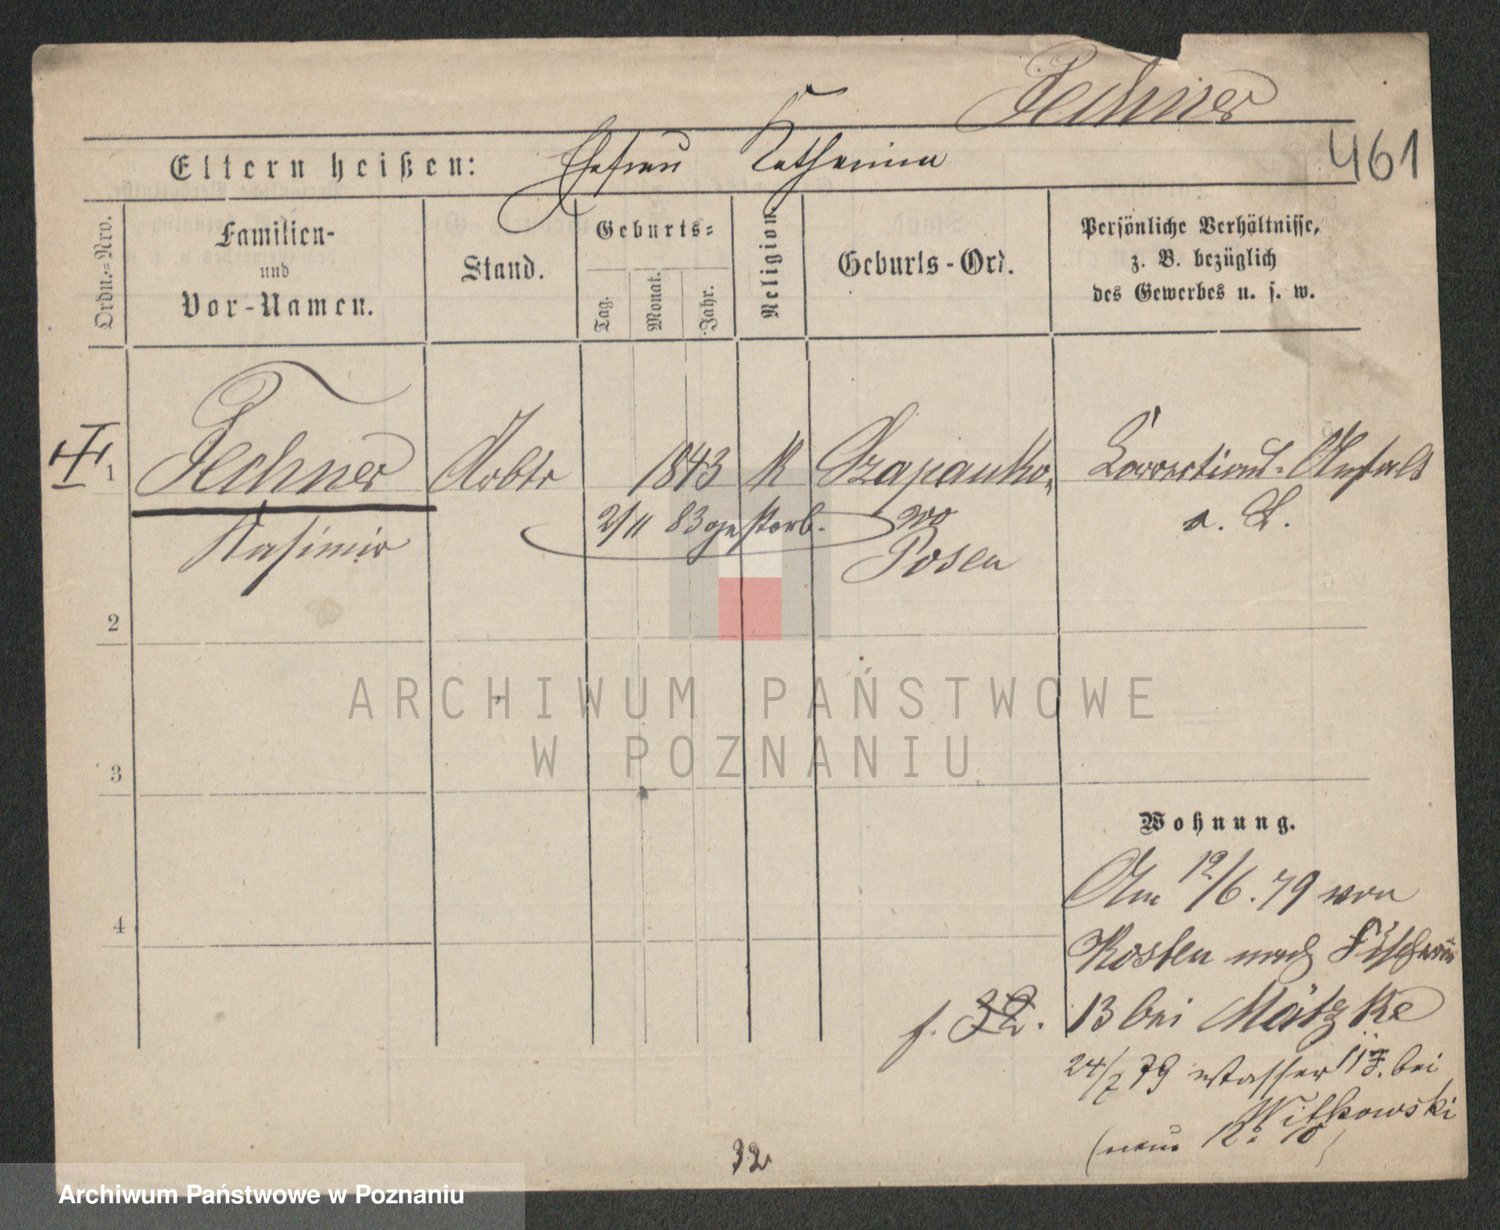 Fechner
461
Eltern heißen: Ehefrau Katharina
Ordn.=Nro.
Familien-
und
Vor-Namen.
Stand.
Geburts=
Tag.
Monat.
Jahr.
Religion.
Geburts-Ort.
Persönliche Verhältnisse,
z. B. bezüglich
des Gewerbes u. s. w.
1
Fechner
Kasimir
Arbtr
1843
K
2/11 83 gestorb.
Posen
Correctional-Anstalt
2
3
4
Wohnung.
Am 12/6. 79 von
Kosten nach
13 bei Mätzke
24/7 79 Wasser bei
Witkowski
(neue 10)
f. 32.
32
ARCHIWUM PAŃSTWOWE
W POZNANIU
Archiwum Państwowe w Poznaniu